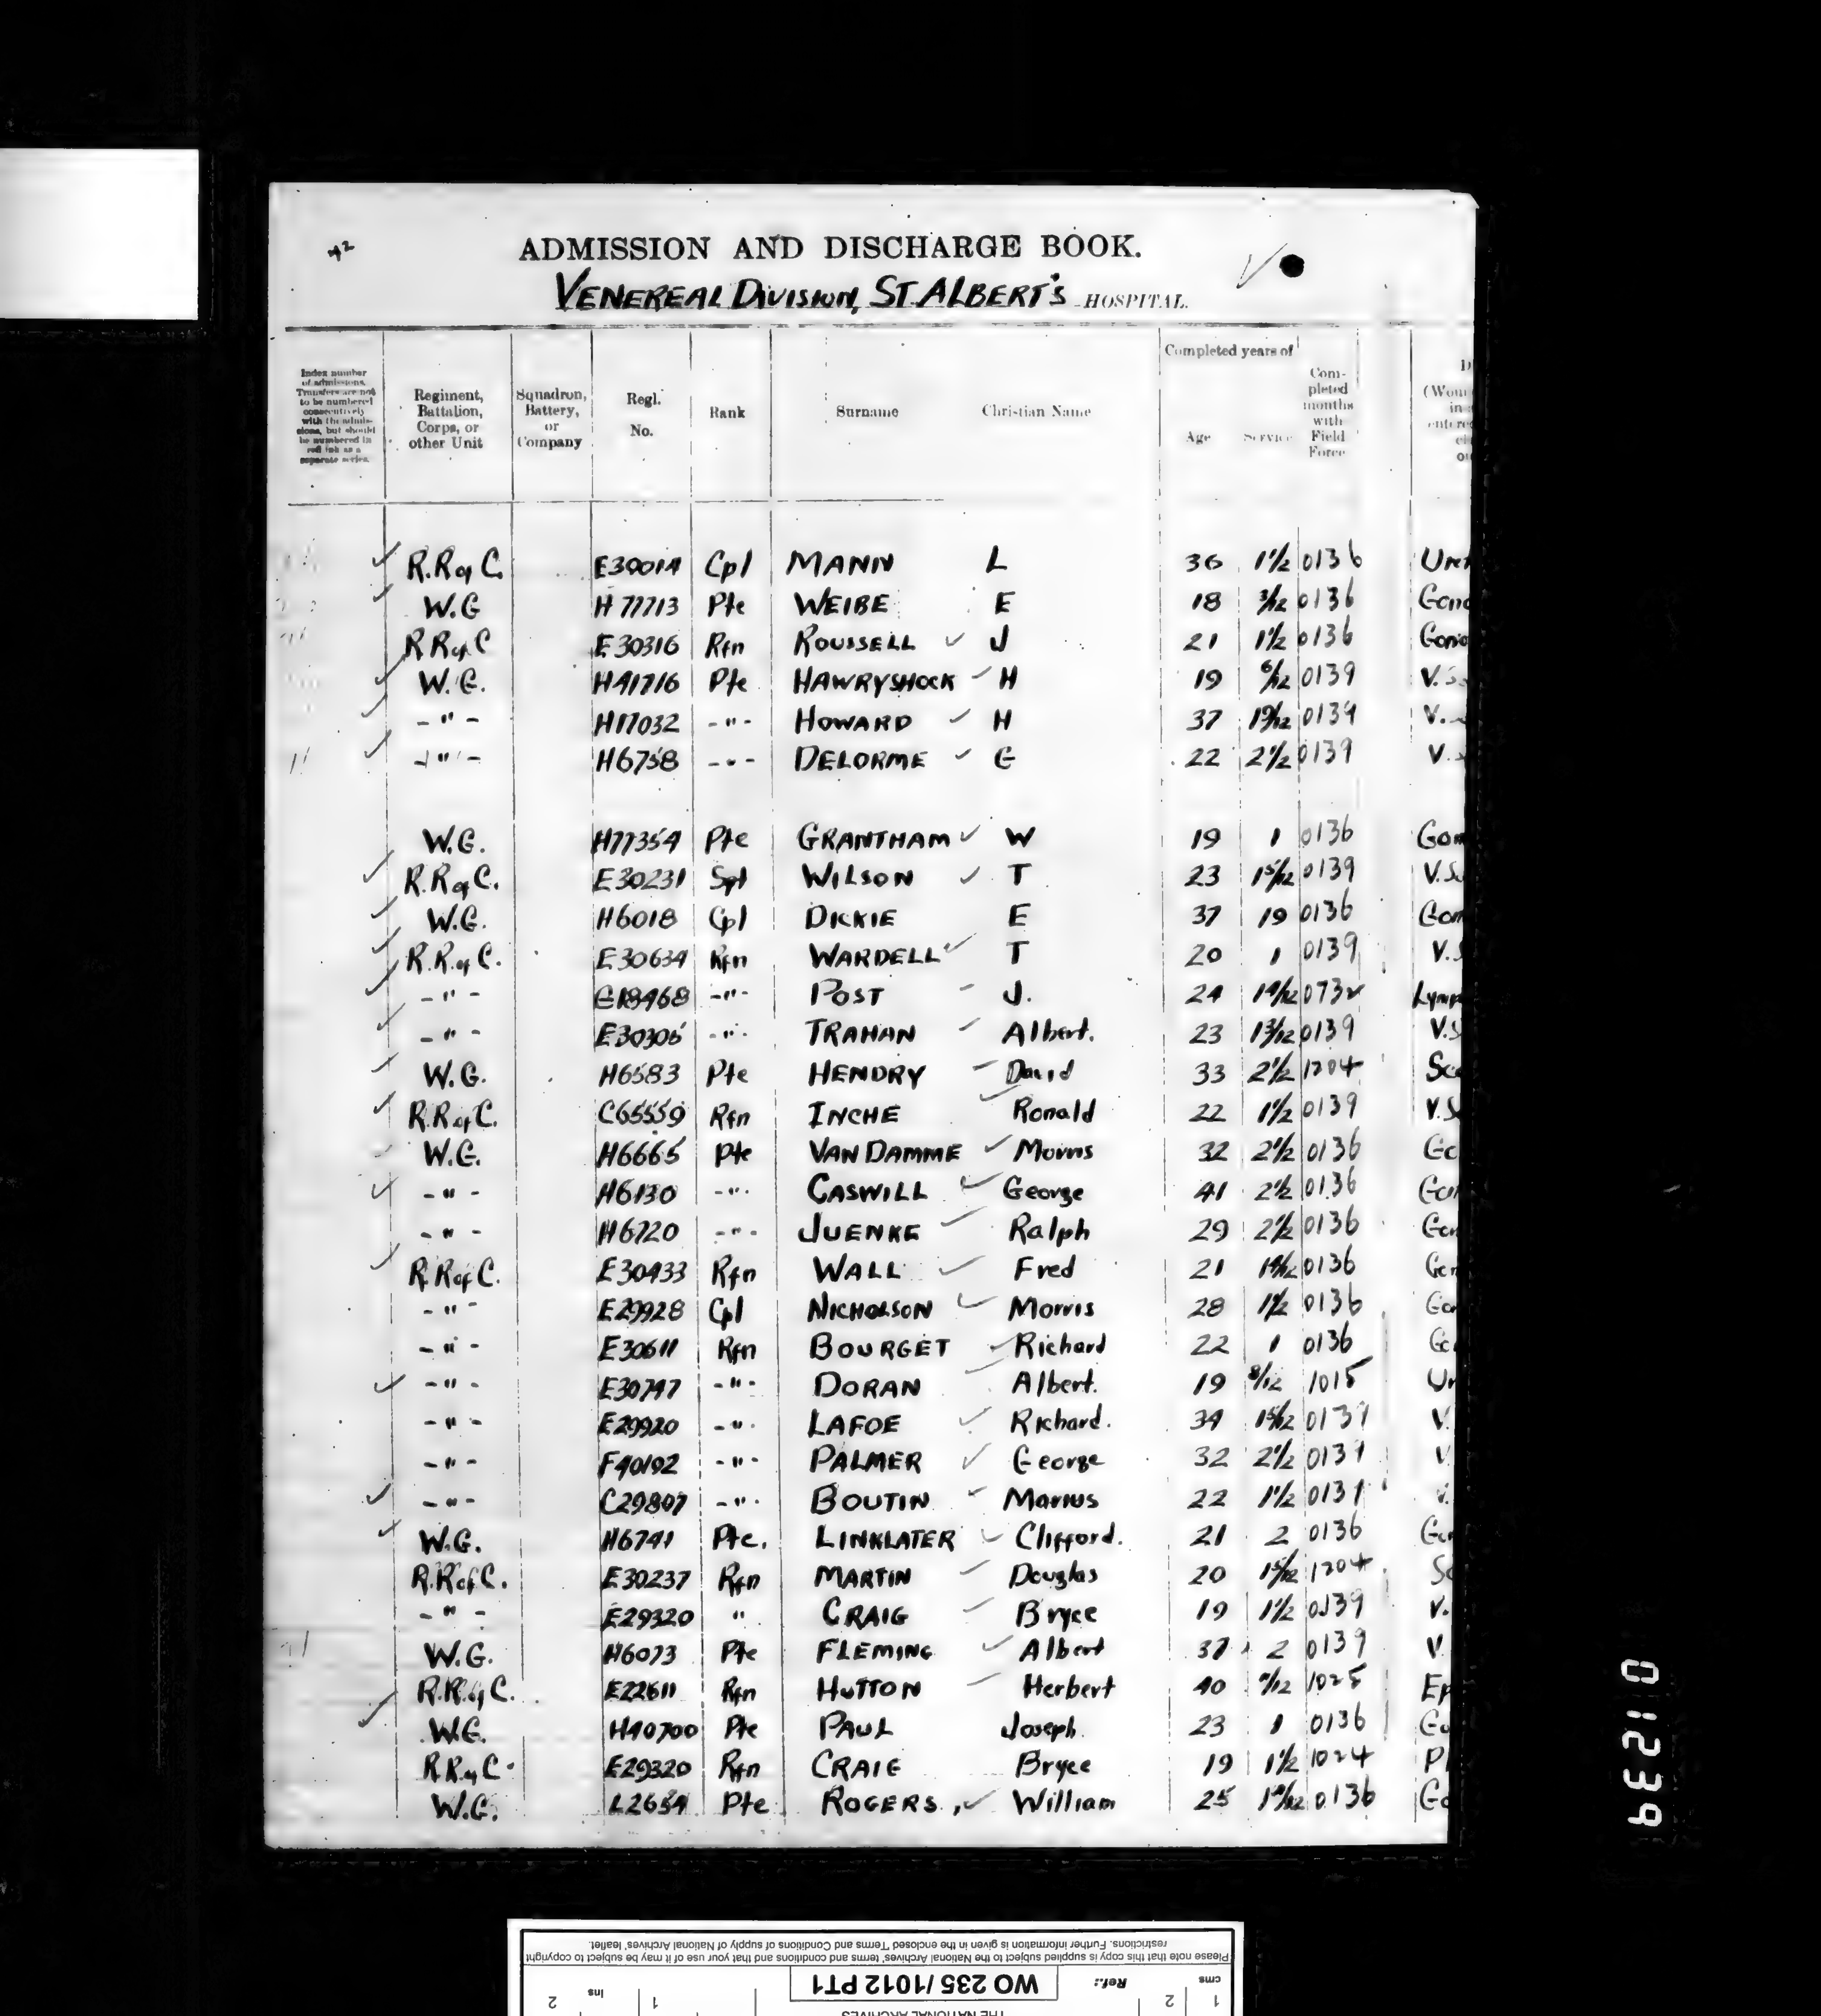 42
ADMISSION AND DISCHARGE BOOK.
VENEREAL DIVISION, ST. ALBERT'S HOSPITAL.
Completed years of
Index number of admissions. Transfers are not to be numbered consecutively with the admissions, but should be numbered in red ink as a separate series.
Regiment, Battalion, Corps, or other Unit
Squadron, Battery, or Company
Regl. No.
Rank
Surname
Christian Name
Age
Service
Completed months with Field Force
R.R of C. E30014 Cpl MANN L 36 1½ 0136
W.G H77713 Pte WEIBE E 18 3/12 0136
R R of C E30316 Rfn ROUSSELL J 21 1½ 0136
W.G. H41716 Pte HAWRYSHOCK H 19 6/12 0139 V.S
-"- H17032 -"- HOWARD H 37 0139 V.
-"- H6758 -"- DELORME G 22 2½ 0139 V.S
W.G. H77354 Pte GRANTHAM W 19 1 0136 Gon
R.R of C. E30231 WILSON T 23 15/12 0139 V.S
W.G. H6018 Cpl DICKIE E 37 19 0136 Gon
R.R. of C. E30634 Rfn WARDELL T 20 1 0139 V.S
-"- G18468 -"- POST J. 24 0732 Lymp
-"- E30305 -"- TRAHAN Albert. 23 13/12 0139 V.S
W.G. H6583 Pte HENDRY David 33 2½ 1204 Sca
R.R of C. C65559 Rfn INCHE Ronald 22 1½ 0139 V.S
W.G. H6665 Pte VAN DAMME Morris 32 2½ 0136 Go
-"- H6130 -"- CASWILL George 41 2½ 0136 Gon
-"- H6720 -"- JUENKE Ralph 29 2½ 0136 Gon
R.R of C. E30433 Rfn WALL Fred 21 0136 Gon
-"- E29928 Cpl NICHOLSON Morris 28 1½ 0136 Gon
-"- E30611 Rfn BOURGET Richard 22 1 0136 Go
-"- E30747 -"- DORAN Albert. 19 8/12 1015 Ur
-"- E29920 -"- LAFOE Richard. 34 15/12 0139 V.
-"- F40192 -"- PALMER George 32 2½ 0139 V
-"- C29807 -"- BOUTIN Marius 22 1½ 0139 V.
W.G. H6741 Pte. LINKLATER Clifford. 21 2 0136 Gon
R.R of C. E30237 Rfn MARTIN Douglas 20 15/12 1204 Sc
-"- E29320 " CRAIG Bryce 19 1½ 0139 V.
W.G. H6073 Pte FLEMING Albert 37 2 0139 V.
R.R. of C. E22611 Rfn HUTTON Herbert 40 1025 Ep
W.G. H40700 Pte PAUL Joseph. 23 1 0136 Go
R.R of C. E29320 Rfn CRAIG Bryce 19 1½ 1024 Pl
W.G. L2654 Pte ROGERS, William 25 0136 Go
01239
Please note that this copy is supplied subject to the National Archives' terms and conditions and that your use of it may be subject to copyright
restrictions. Further information is given in the enclosed 'Terms and Conditions of supply of National Archives' leaflet.
Ref.: WO 235 /1012 PT1
cms 1 2 ins 1 2
THE NATIONAL ARCHIVES